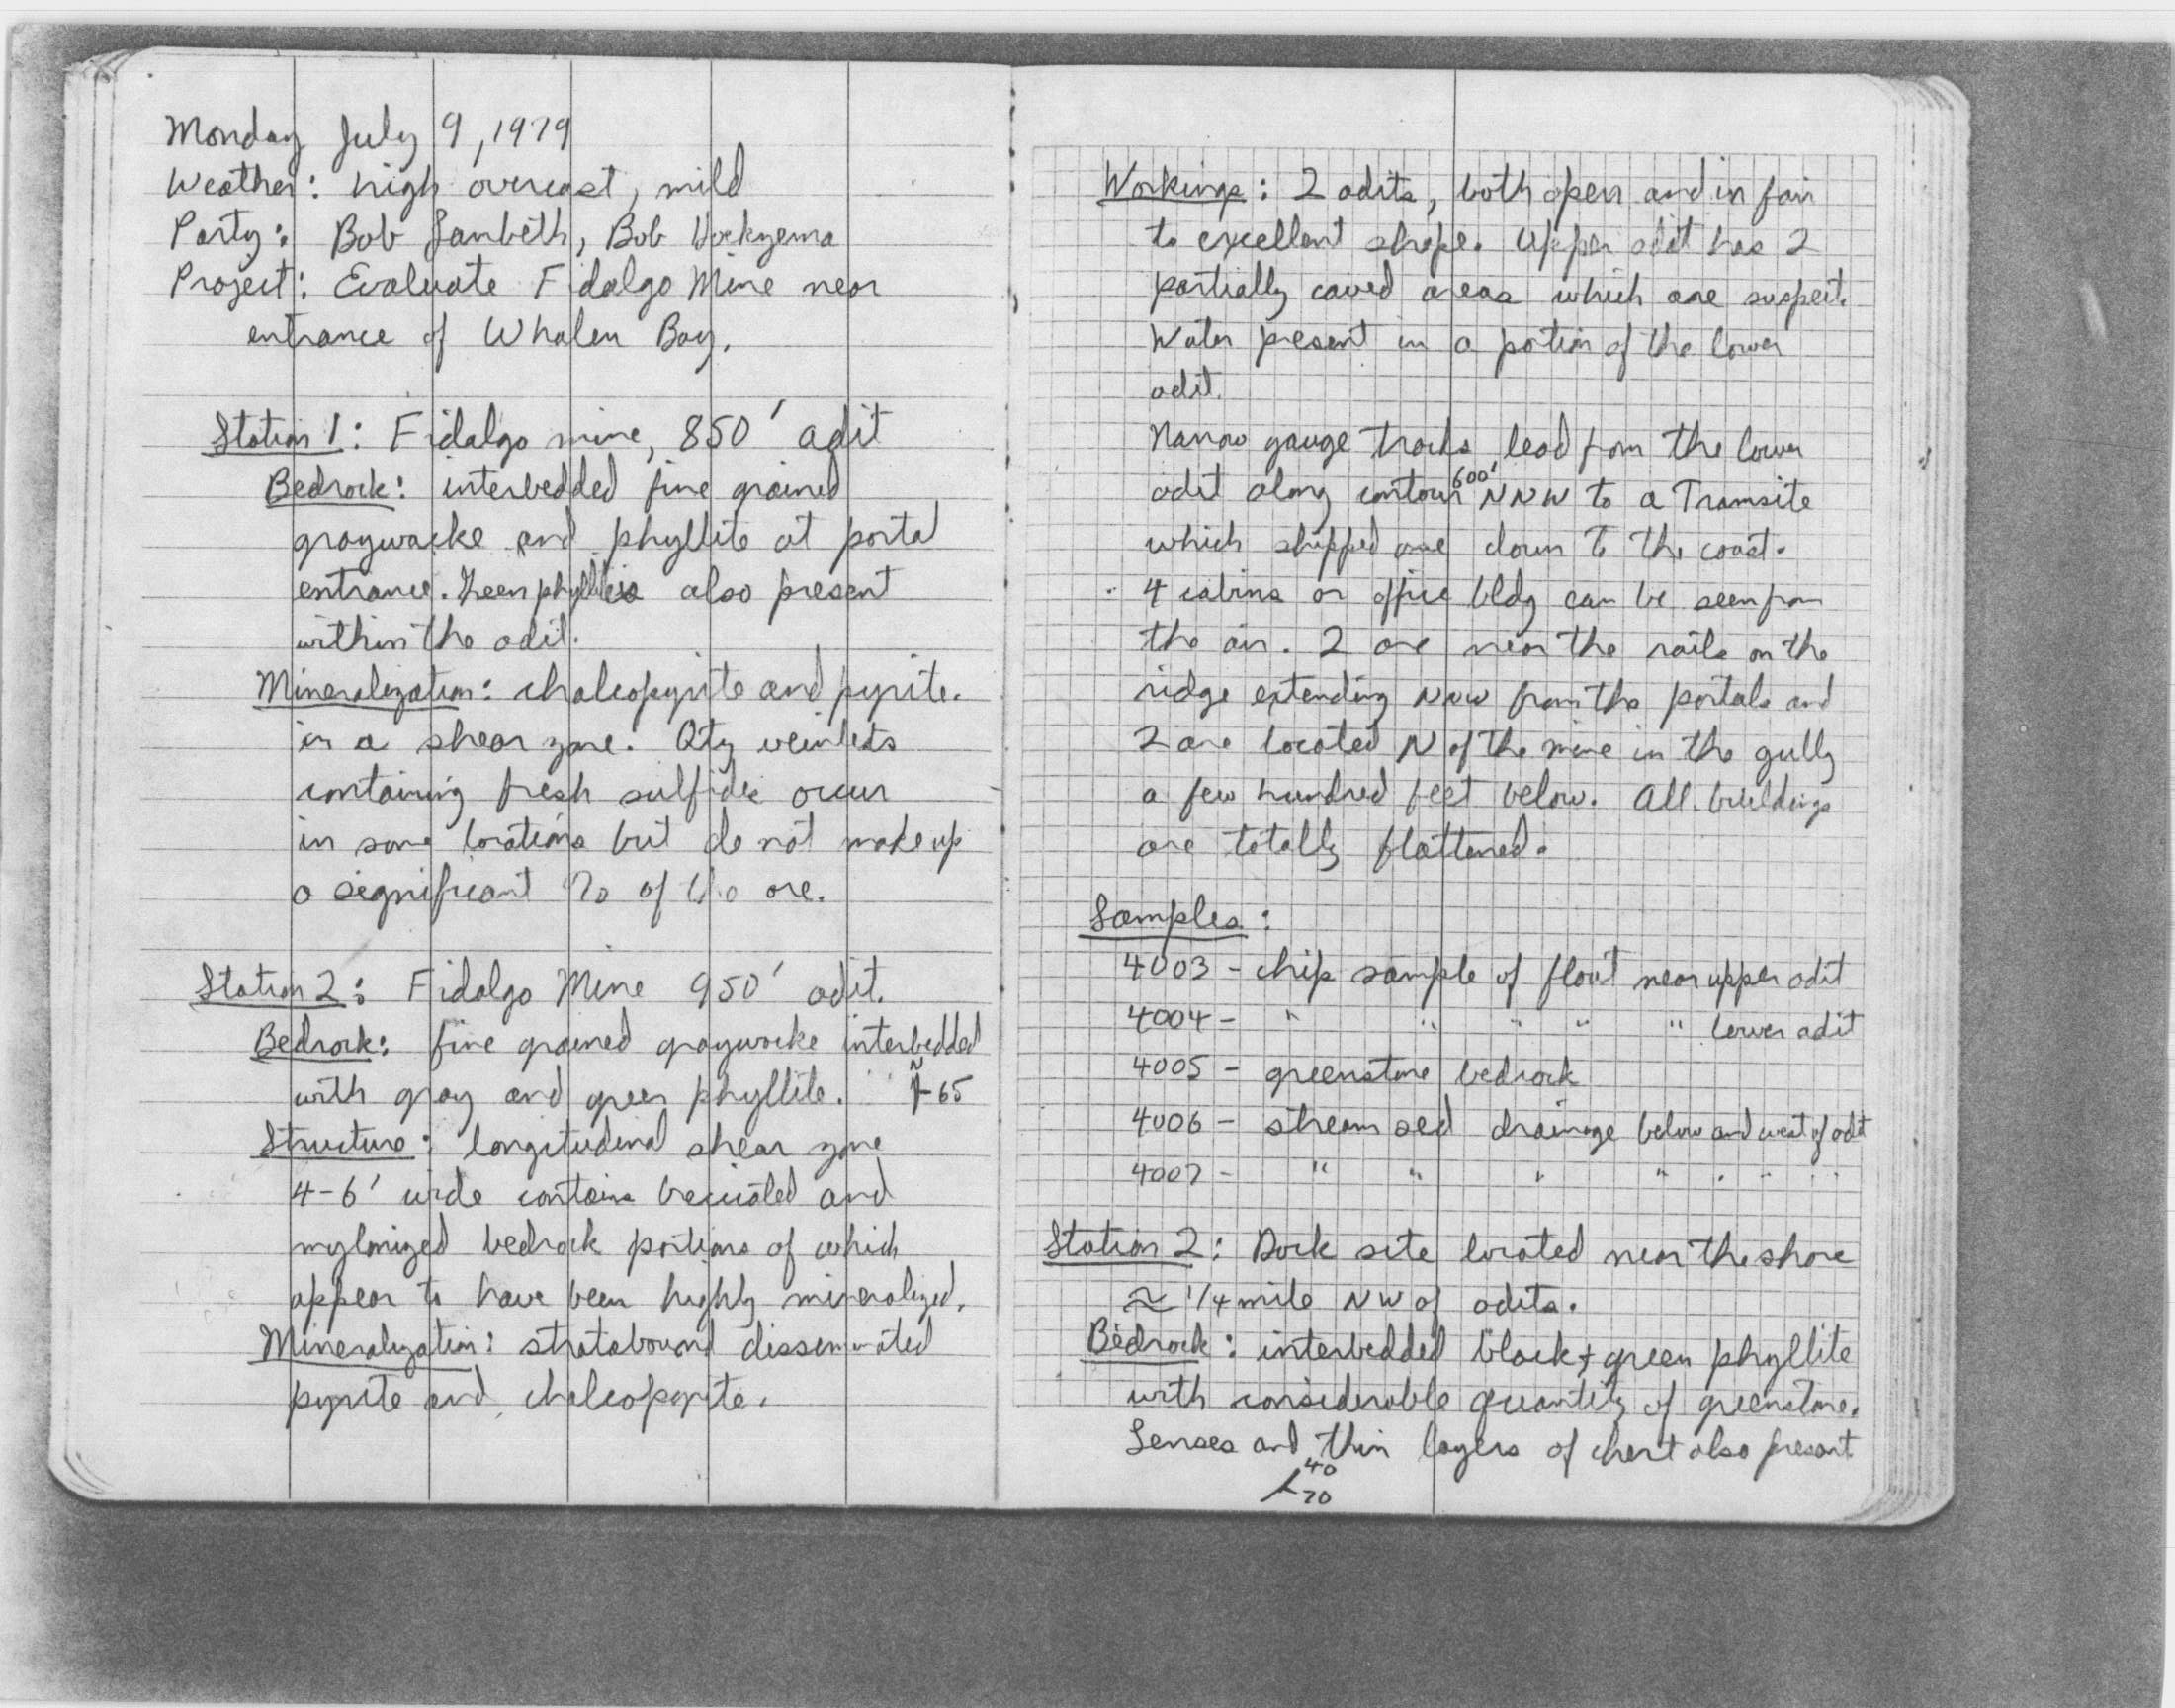 Monday July 9, 1979
Weather: high overcast, mild
Party: Bob Lambeth, Bob Hoekzema
Project: Evaluate Fidalgo Mine near
entrance of Whalen Bay.
Station 1: Fidalgo mine, 850' adit
Bedrock: interbedded fine grained
graywacke and phyllite at portal
entrance. Green phyllite also present
within the adit.
Mineralization: chalcopyrite and pyrite.
in a shear zone. Qtz veinlets
containing fresh sulfides occur
in some locations but do not make up
a significant % of the ore.
Station 2: Fidalgo Mine 950' adit.
Bedrock: fine grained graywacke interbedded
with gray and green phyllite. 65
Structure: longitudinal shear zone
4-6' wide contains brecciated and
mylonized bedrock portions of which
appear to have been highly mineralized.
Mineralization: stratabound disseminated
pyrite and chalcopyrite.
Workings: 2 adits, both open and in fair
to excellent shape. Upper adit has 2
partially caved areas which are suspect.
Water present in a portion of the lower
adit.
Narrow gauge tracks lead from the lower
adit along contour 600' NNW to a Tramsite
which shipped ore down to the coast.
4 cabins or office bldg can be seen from
the air. 2 are near the rails on the
ridge extending NNW from the portals and
2 are located N of the mine in the gully
a few hundred feet below. All buildings
are totally flattened.
Samples:
4003 - chip sample of float near upper adit
4004 - " " " " " lower adit
4005 - greenstone bedrock
4006 - stream sed drainage below and west of adit
4007 - " " " " " " "
Station 2: Dock site located near the shore
≈ 1/4 mile NW of adits.
Bedrock: interbedded black + green phyllite
with considerable quantity of greenstone.
Lenses and thin layers of chert also present
40
70